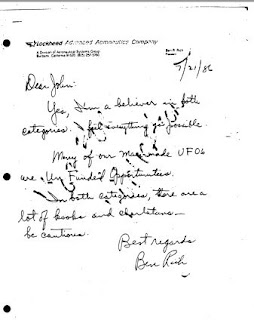 Lockheed Advanced Aeronautics Company
A Division of Aeronautical Systems Group
Burbank, California 91520
Ben R. Rich
President
7/21/86
Dear John:
Yes, I'm a believer in both
categories. I feel everything is possible.
Many of our Man-made UFOs
are Un Funded Opportunities.
In both categories, there are a
lot of kooks and charlatans —
be cautious.
Best regards
Ben Rich